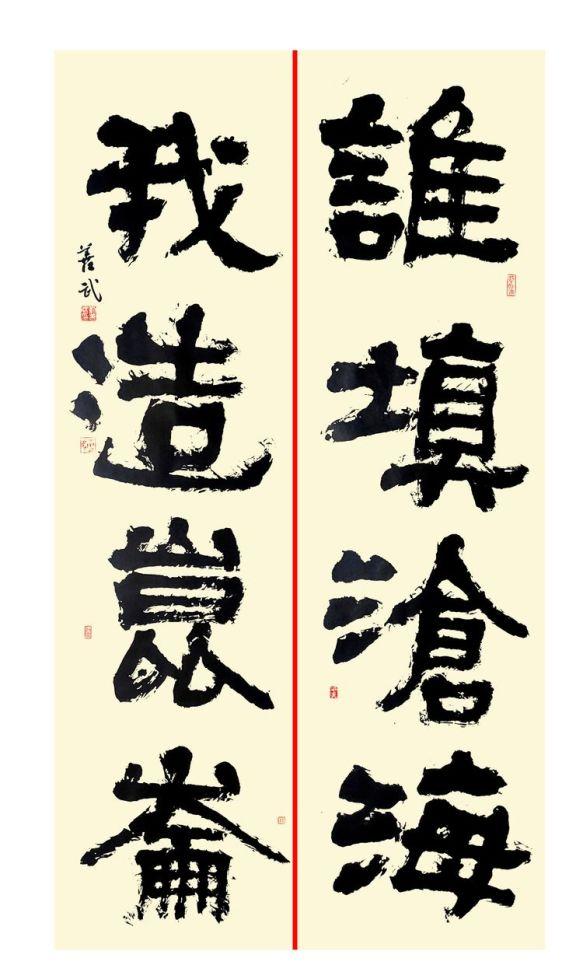 誰填滄海
我造崑崙
善武